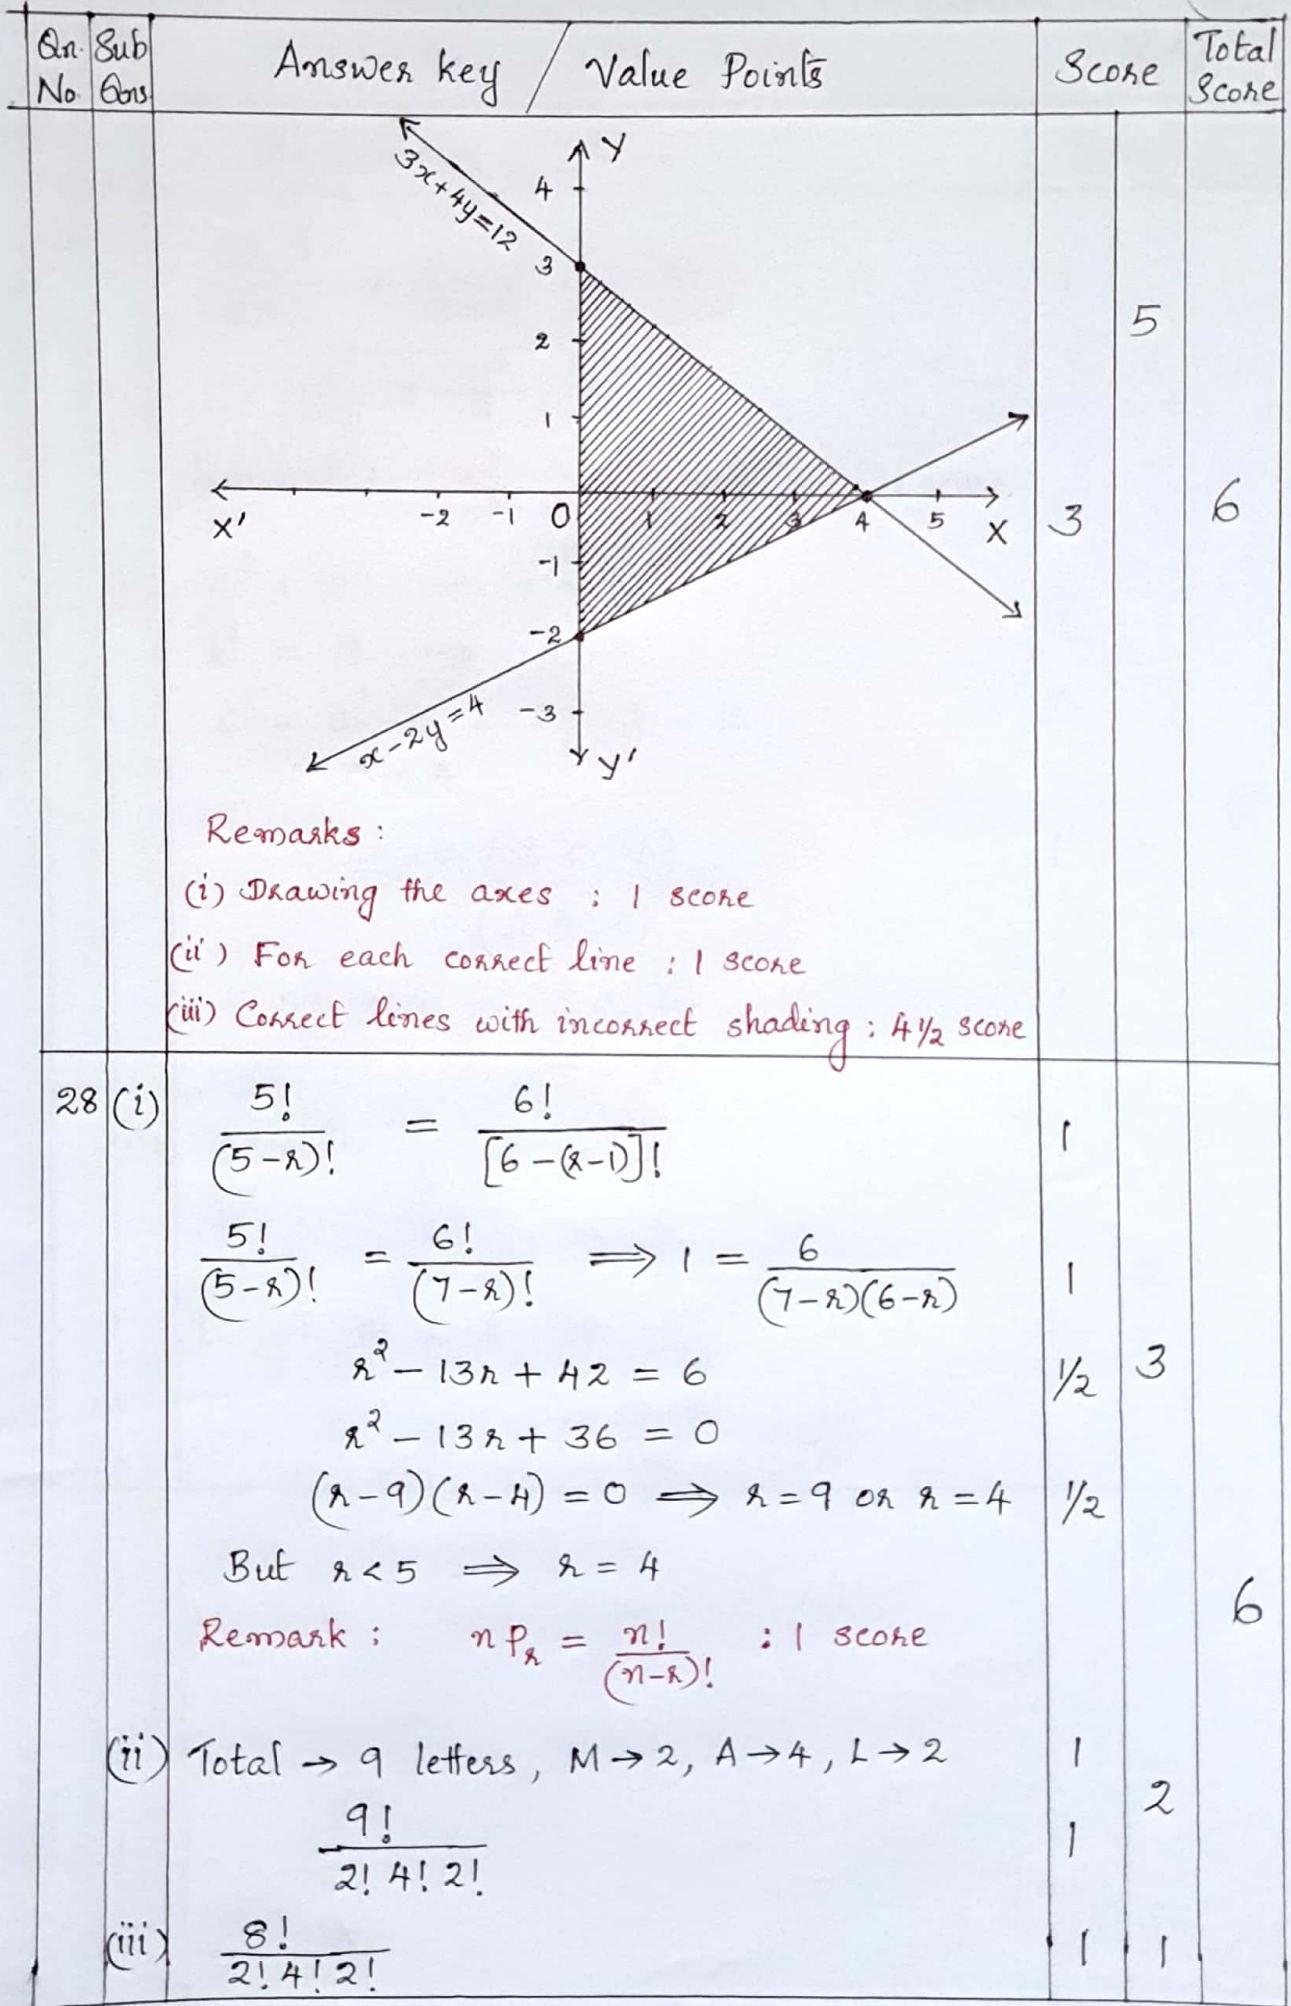 Qn. No. Sub Qns Answer key / Value Points Score Total Score
Y
3x+4y=12
4
3
2
1
5
X' -2 -1 0 1 2 3 4 5 X 3 6
-1
-2
x-2y=4 -3
Y'
Remarks :
(i) Drawing the axes : 1 score
(ii) For each correct line : 1 score
(iii) Correct lines with incorrect shading : 4 1/2 score
28 (i) 5!/(5-r)! = 6!/[6-(r-1)]! 1
5!/(5-r)! = 6!/(7-r)! ⟹ 1 = 6/(7-r)(6-r) 1
r² - 13r + 42 = 6 1/2 3
r² - 13r + 36 = 0
(r-9)(r-4) = 0 ⟹ r = 9 or r = 4 1/2
But r < 5 ⟹ r = 4
6
Remark : nPr = n!/(n-r)! : 1 score
(ii) Total → 9 letters, M → 2, A → 4, L → 2 1
2
9!/2! 4! 2! 1
(iii) 8!/2! 4! 2! 1 1